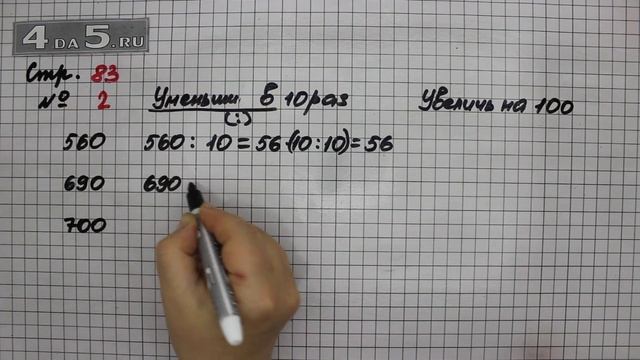 4 DA 5.RU
Стр. 83
№ 2 Уменьши в 10 раз Увеличь на 100
(:)
560 560 : 10 = 56 (10:10) = 56
690 690
700